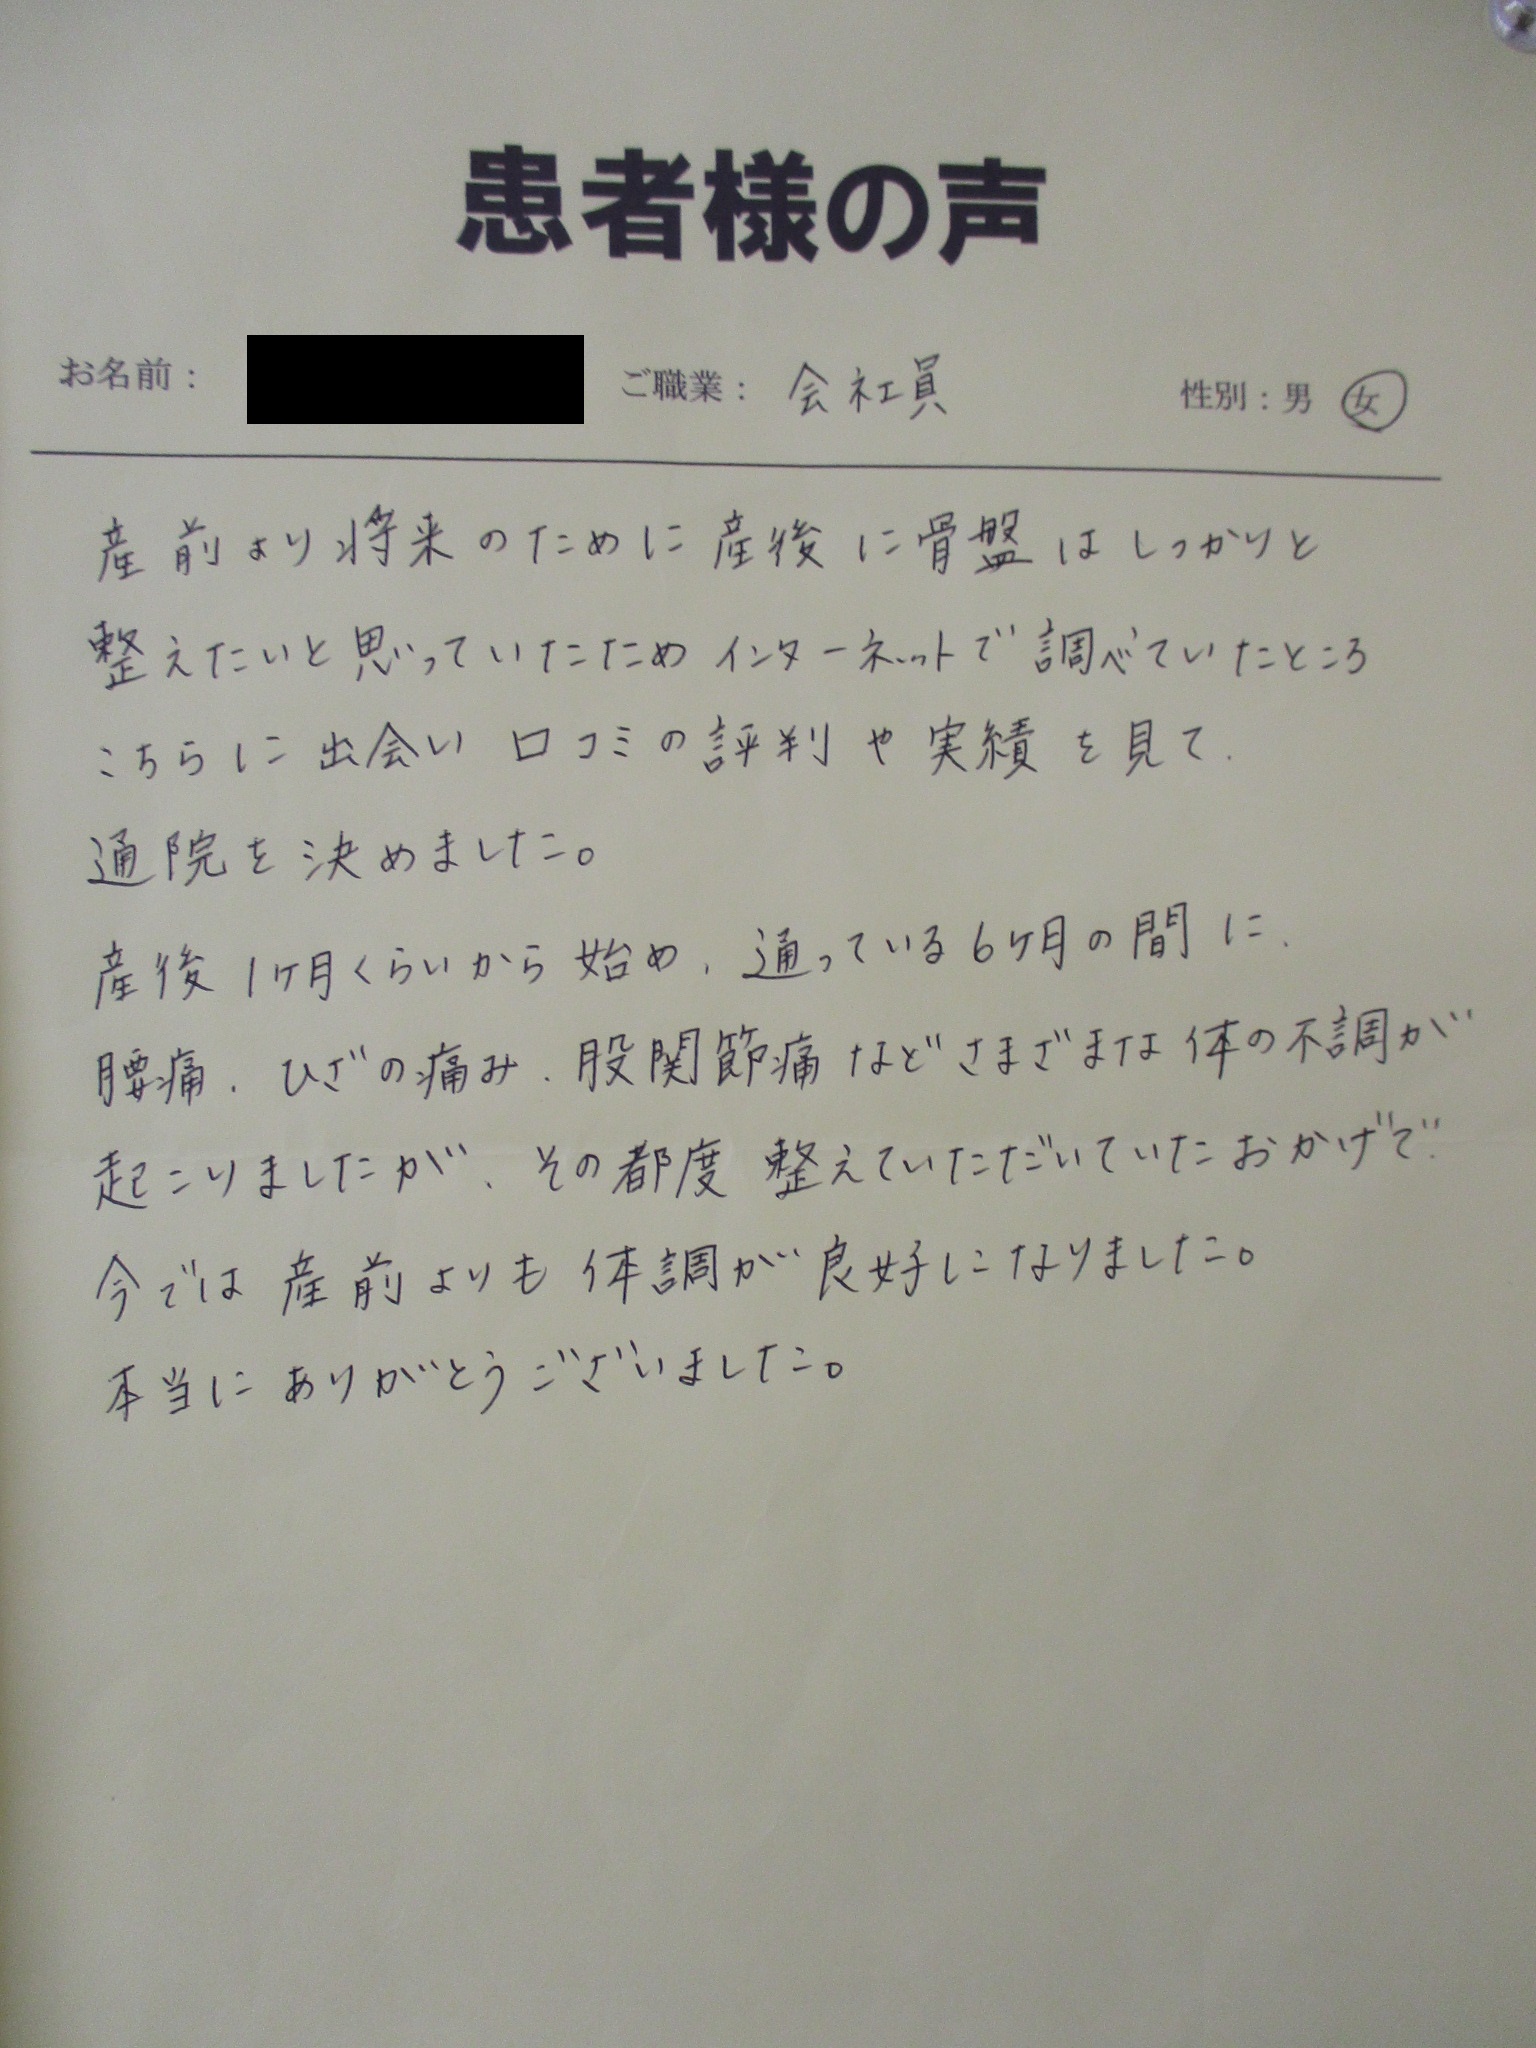 患者様の声
お名前： ご職業： 会社員 性別：男 女
産前より将来のために産後に骨盤はしっかりと
整えたいと思っていたため インターネットで調べていたところ
こちらに出会い 口コミの評判や実績を見て、
通院を決めました。
産後1ヶ月くらいから始め、通っている6ヶ月の間に、
腰痛、ひざの痛み、股関節痛などさまざまな体の不調が
起こりましたが、その都度 整えていただいていたおかげで、
今では産前よりも体調が良好になりました。
本当にありがとうございました。